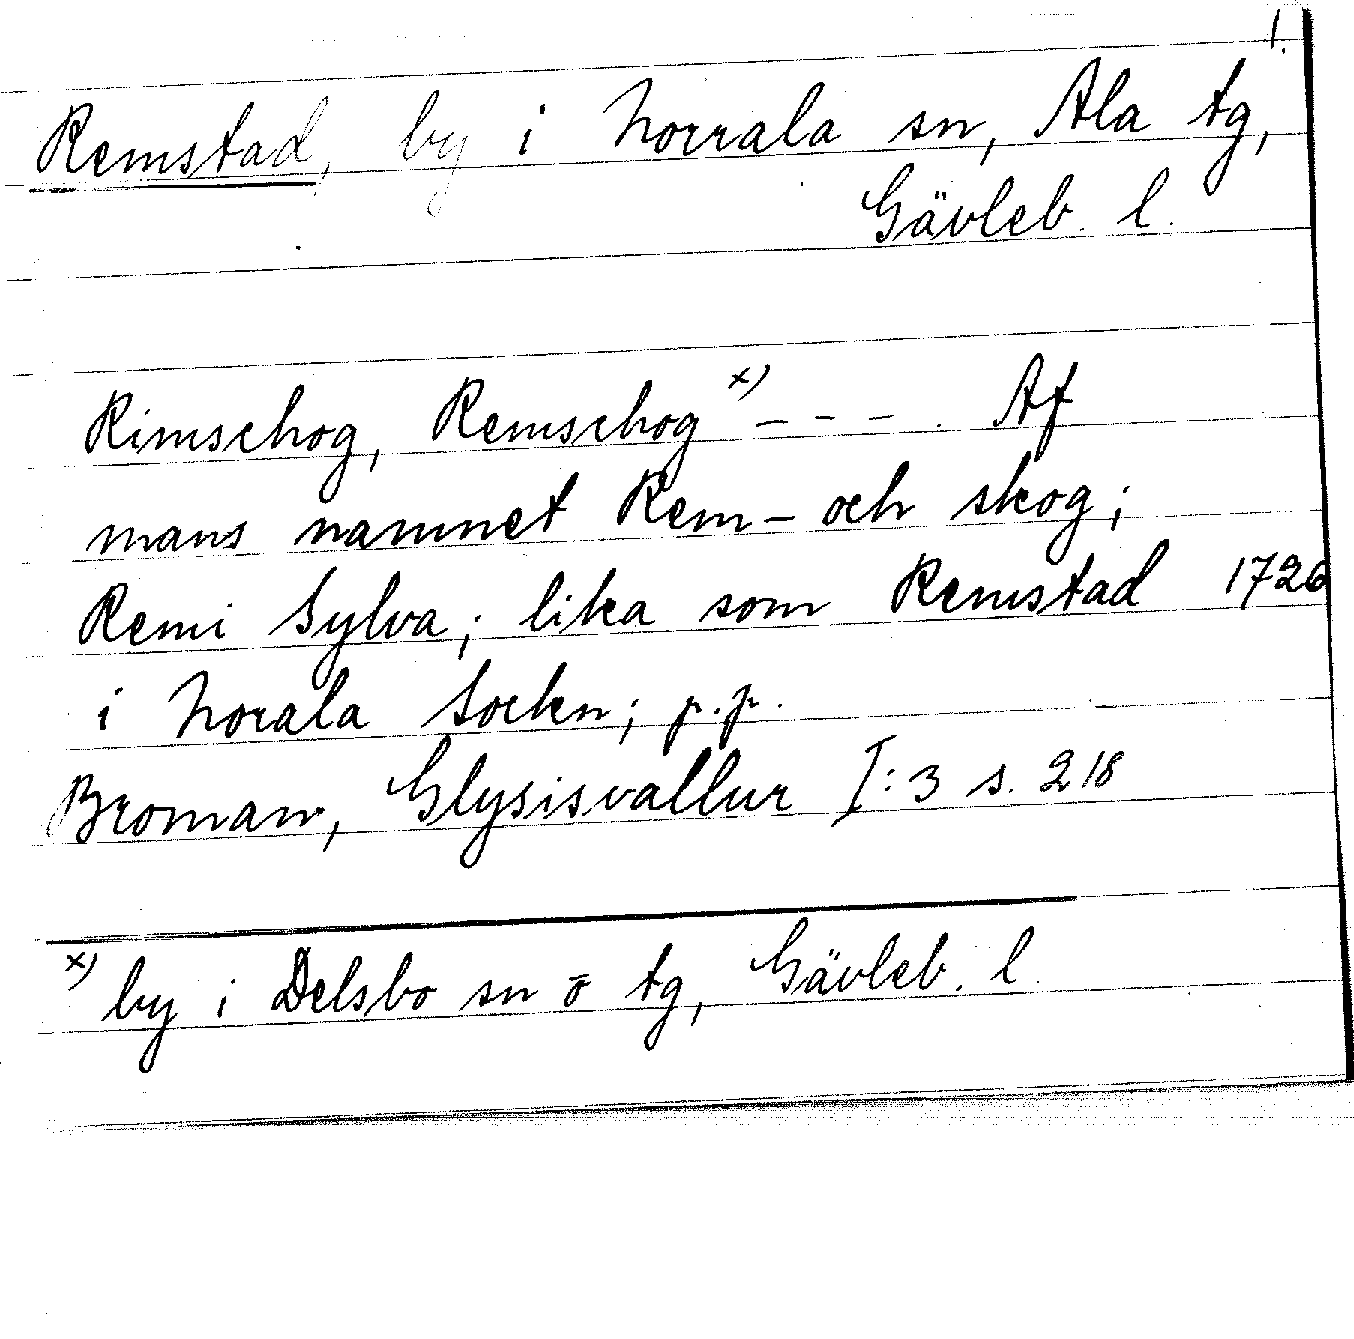 1.
Remstad, by i Norrala sn, Ala tg,
Gävleb. l.
Rimschog, Remschog x) - - - . Af
mans namnet Rem- och skog;
Remi Sylva; lika som Remstad 1726
i Norala Sockn; p.p.
Broman, Glysisvallur I:3 s. 218
x) by i Delsbo sn o tg, Gävleb. l.